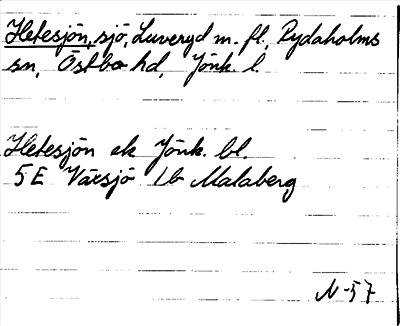 Hetesjön, sjö, Luveryd m. fl., Rydaholms
sn, Östbo hd, Jönk. l.
Hetesjön ek Jönk. bl.
5E Växsjö 1b Malaberg
N-57